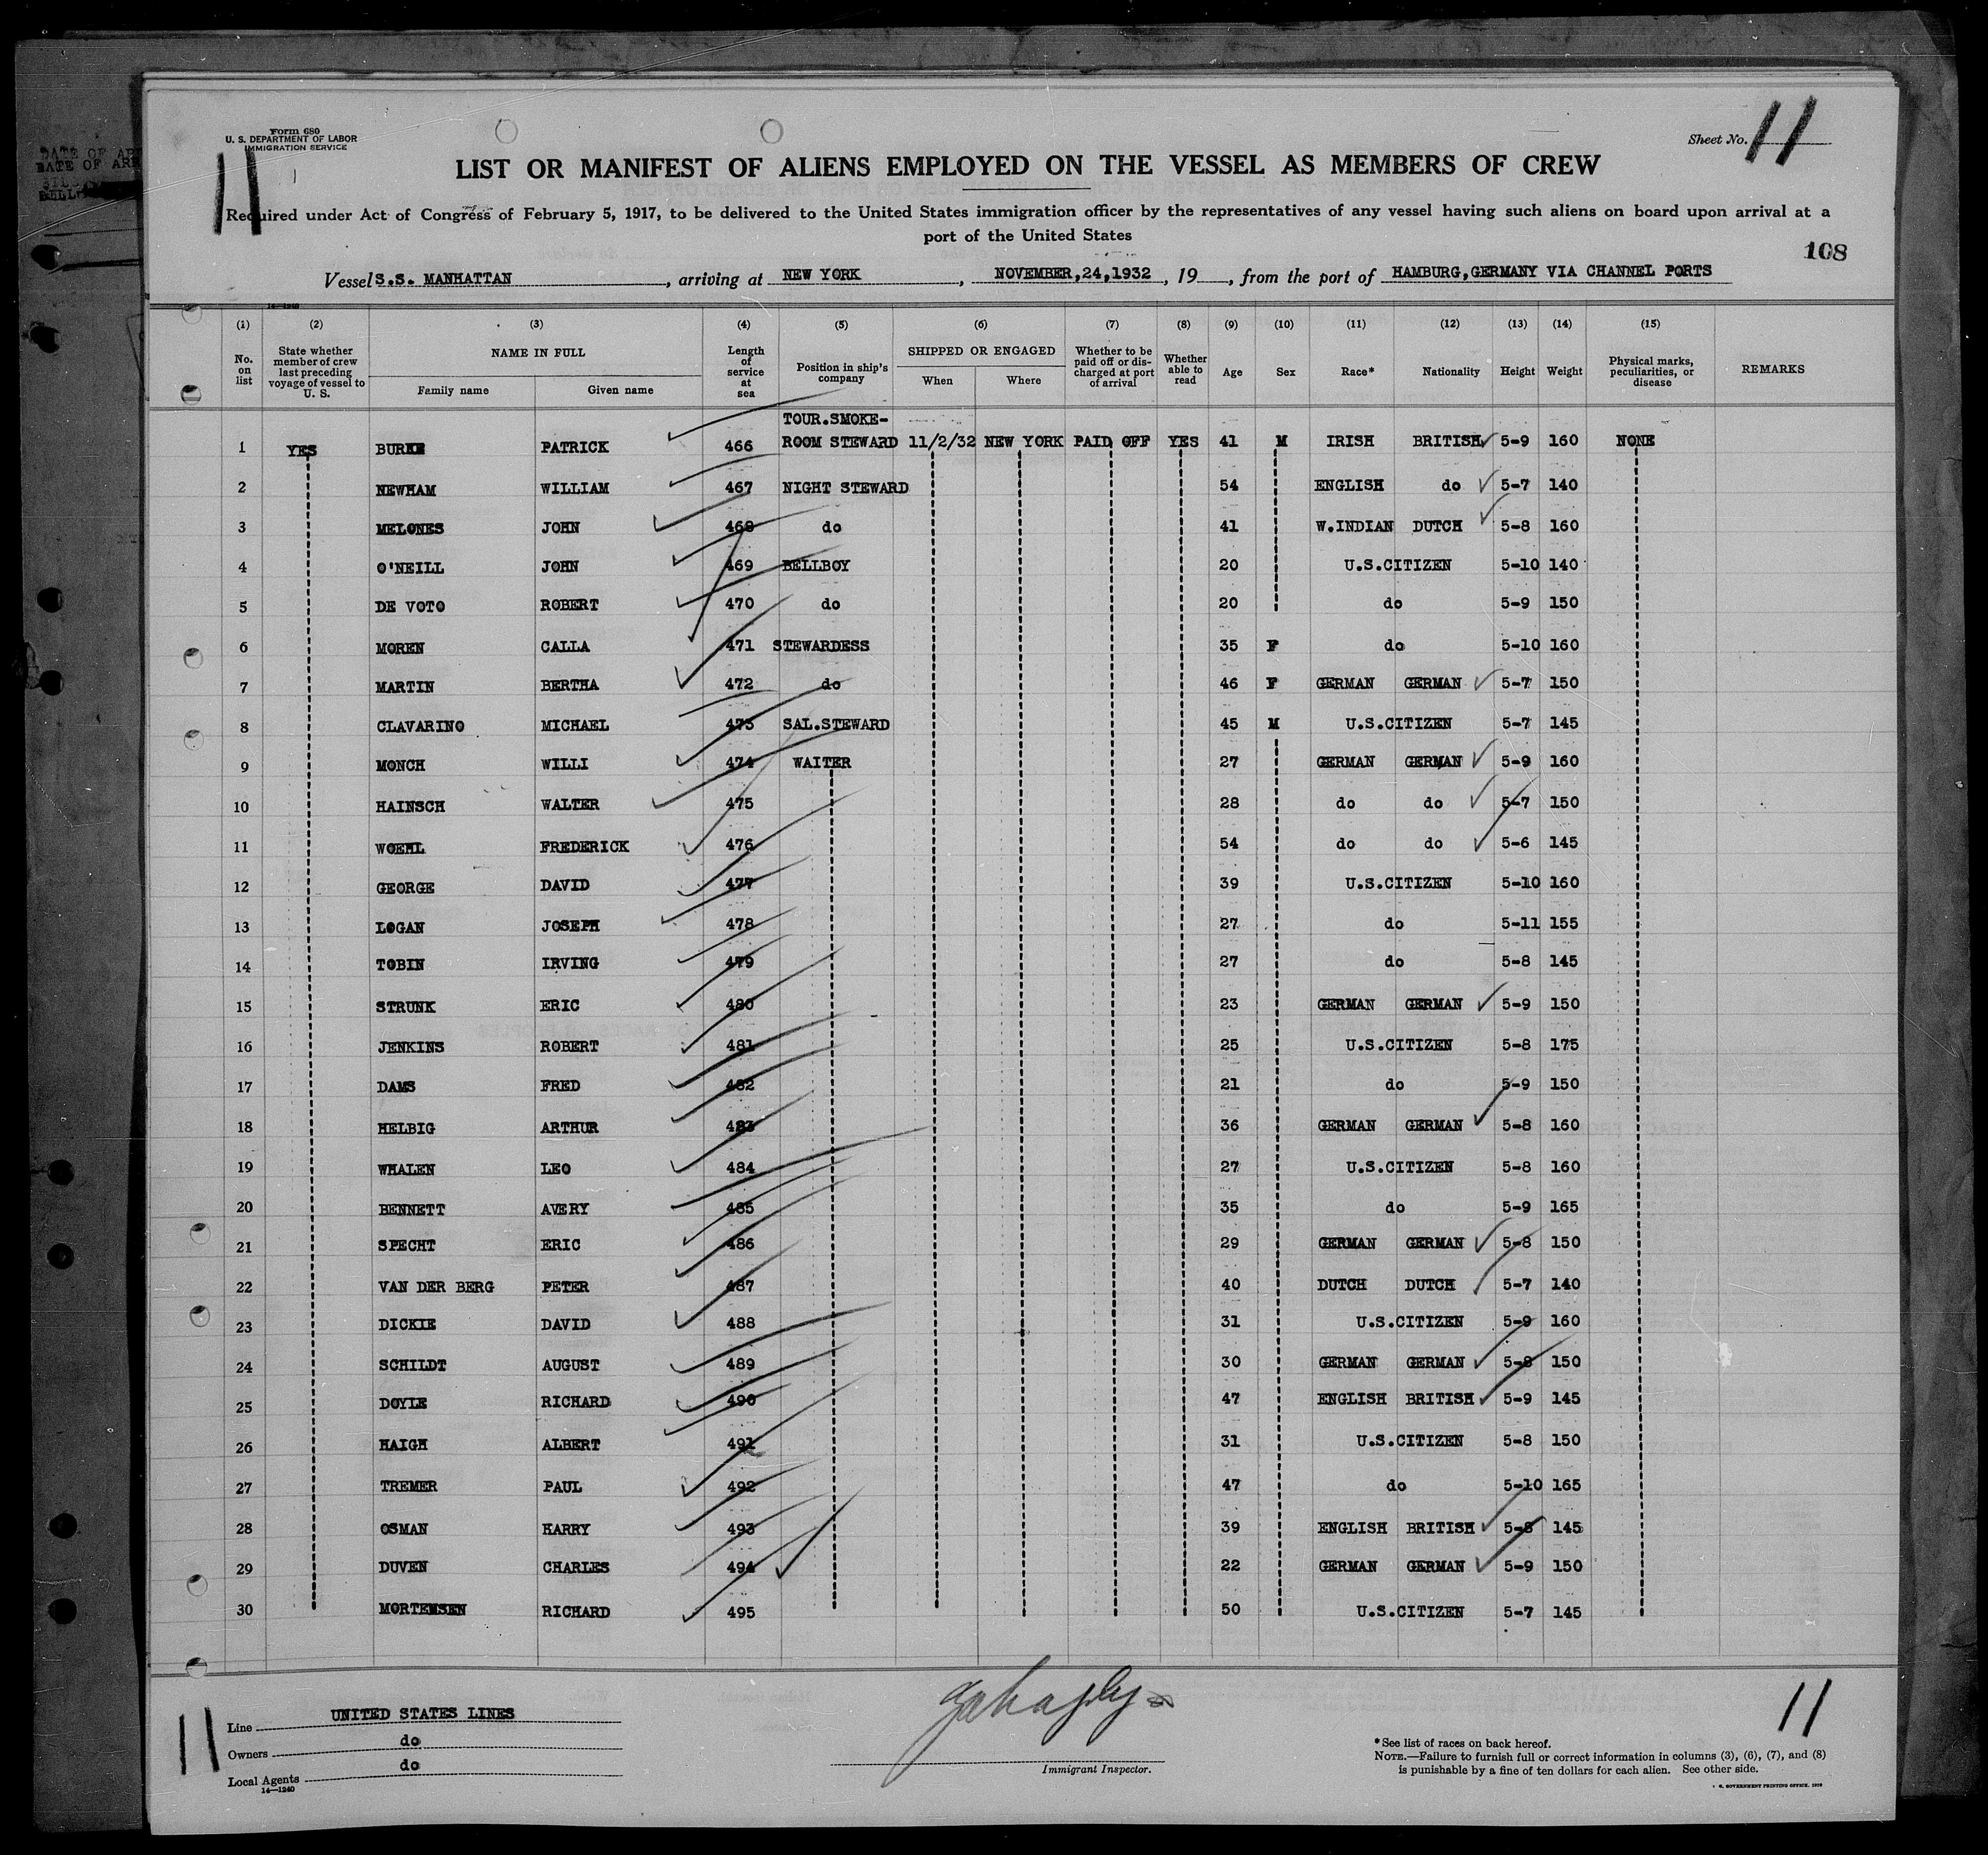 Form 680
U. S. DEPARTMENT OF LABOR
IMMIGRATION SERVICE
11
Sheet No. 11
LIST OR MANIFEST OF ALIENS EMPLOYED ON THE VESSEL AS MEMBERS OF CREW
Required under Act of Congress of February 5, 1917, to be delivered to the United States immigration officer by the representatives of any vessel having such aliens on board upon arrival at a
port of the United States
108
Vessel S.S. MANHATTAN, arriving at NEW YORK, NOVEMBER,24,1932, 19, from the port of HAMBURG,GERMANY VIA CHANNEL PORTS
(1) (2) (3) (4) (5) (6) (7) (8) (9) (10) (11) (12) (13) (14) (15)
No. on list State whether member of crew last preceding voyage of vessel to U. S. NAME IN FULL Family name Given name Length of service at sea Position in ship's company SHIPPED OR ENGAGED When Where Whether to be paid off or discharged at port of arrival Whether able to read Age Sex Race* Nationality Height Weight Physical marks, peculiarities, or disease REMARKS
TOUR.SMOKE-
1 YES BURKE PATRICK 466 ROOM STEWARD 11/2/32 NEW YORK PAID OFF YES 41 M IRISH BRITISH 5-9 160 NONE
2 NEWHAM WILLIAM 467 NIGHT STEWARD 54 ENGLISH do 5-7 140
3 MELONES JOHN 468 do 41 W.INDIAN DUTCH 5-8 160
4 O'NEILL JOHN 469 BELLBOY 20 U.S.CITIZEN 5-10 140
5 DE VOTO ROBERT 470 do 20 do 5-9 150
6 MOREN CALLA 471 STEWARDESS 35 F do 5-10 160
7 MARTIN BERTHA 472 do 46 F GERMAN GERMAN 5-7 150
8 CLAVARINO MICHAEL 473 SAL.STEWARD 45 M U.S.CITIZEN 5-7 145
9 MONCH WILLI 474 WAITER 27 GERMAN GERMAN 5-9 160
10 HAINSCH WALTER 475 28 do do 5-7 150
11 WOEHL FREDERICK 476 54 do do 5-6 145
12 GEORGE DAVID 477 39 U.S.CITIZEN 5-10 160
13 LOGAN JOSEPH 478 27 do 5-11 155
14 TOBIN IRVING 479 27 do 5-8 145
15 STRUNK ERIC 480 23 GERMAN GERMAN 5-9 150
16 JENKINS ROBERT 481 25 U.S.CITIZEN 5-8 175
17 DAMS FRED 482 21 do 5-9 150
18 HELBIG ARTHUR 483 36 GERMAN GERMAN 5-8 160
19 WHALEN LEO 484 27 U.S.CITIZEN 5-8 160
20 BENNETT AVERY 485 35 do 5-9 165
21 SPECHT ERIC 486 29 GERMAN GERMAN 5-8 150
22 VAN DER BERG PETER 487 40 DUTCH DUTCH 5-7 140
23 DICKIE DAVID 488 31 U.S.CITIZEN 5-9 160
24 SCHILDT AUGUST 489 30 GERMAN GERMAN 5-8 150
25 DOYLE RICHARD 490 47 ENGLISH BRITISH 5-9 145
26 HAIGH ALBERT 491 31 U.S.CITIZEN 5-8 150
27 TREMER PAUL 492 47 do 5-10 165
28 OSMAN HARRY 493 39 ENGLISH BRITISH 5-8 145
29 DUVEN CHARLES 494 22 GERMAN GERMAN 5-9 150
30 MORTENSEN RICHARD 495 50 U.S.CITIZEN 5-7 145
11
Line UNITED STATES LINES
Owners do
Local Agents do
14—1240
Immigrant Inspector.
11
*See list of races on back hereof.
NOTE.—Failure to furnish full or correct information in columns (3), (6), (7), and (8)
is punishable by a fine of ten dollars for each alien. See other side.